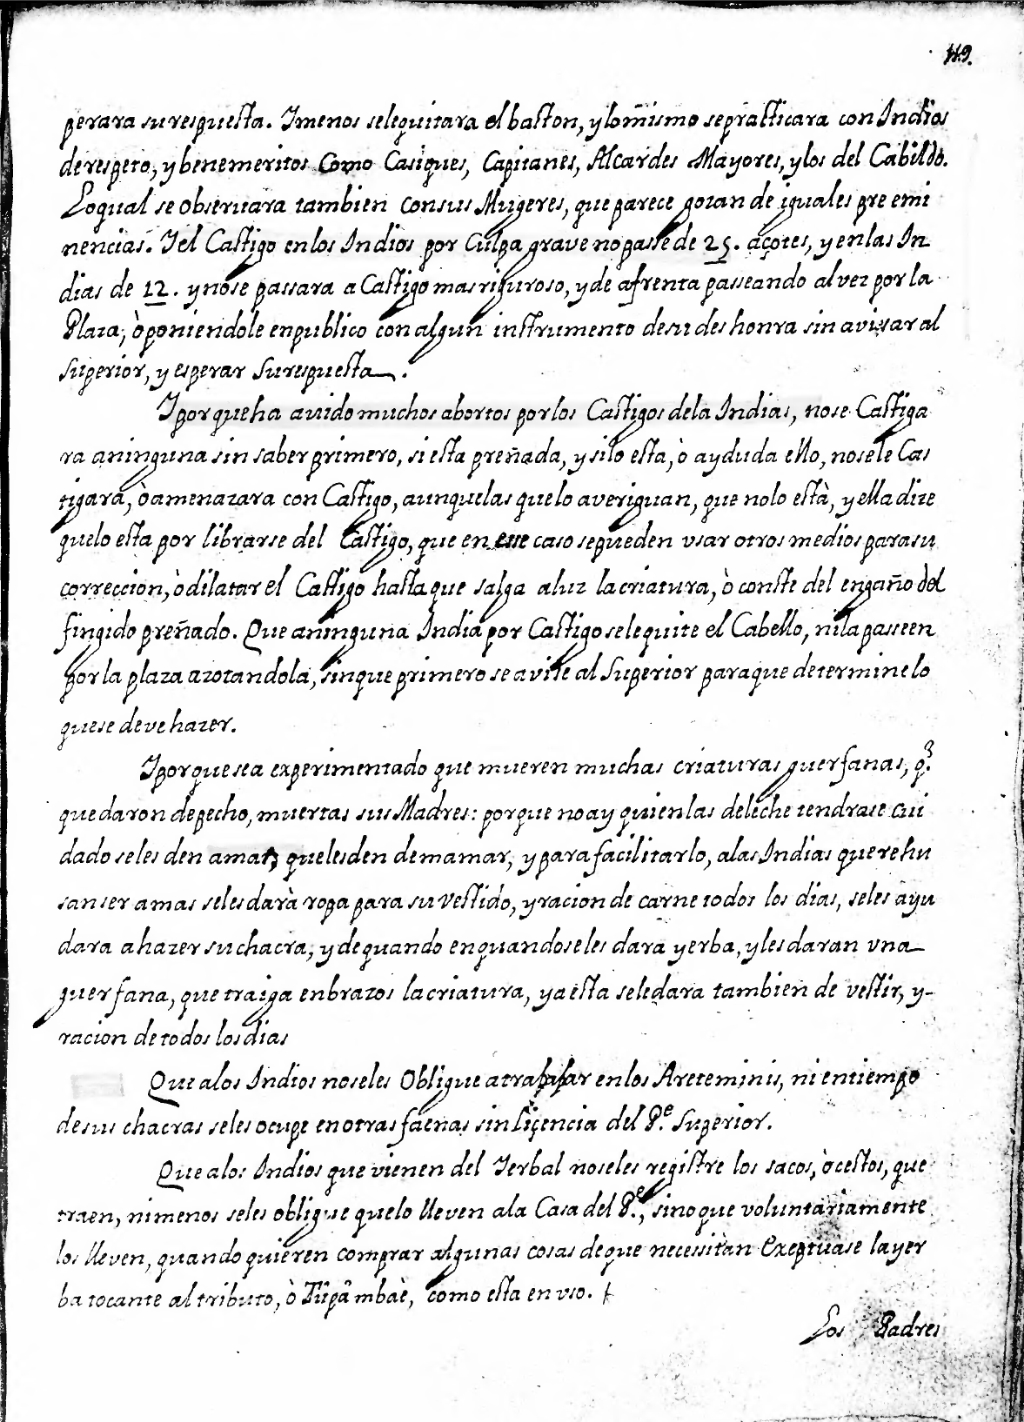 119.
perara su respuesta. I menos sele quitara el baston, y lo mismo se practicara con Indios
de respeto, y benemeritos como Casiques, Capitanes, Alcardes Mayores, y los del Cabildo.
Lo qual se observara tambien con sus Mugeres, que parece gozan de iguales pre emi
nencias. I el Castigo en los Indios por Culpa grave no passe de 25. açotes, y en las In
dias de 12. y no se passara a Castigo mas riguroso, y de afrenta passeando al vez por la
Plaza, ò poniendole en publico con algun instrumento de su deshonra sin avisar al
Superior, y esperar su respuesta.
I por que ha avido muchos abortos por los Castigos de la Indias, no se Castiga
ra a ninguna sin saber primero, si esta preñada, y si lo esta, ò ay duda ello, no se le Cas
tigara, ò amenazara con Castigo, aunque las que lo averiguan, que no lo està, y ella dize
que lo esta por librarse del Castigo, que en ese caso se pueden usar otros medios para su
correccion, ò dilatar el Castigo hasta que salga a luz la criatura, ò conste del engaño del
fingido preñado. Que a ninguna India por Castigo sele quite el Cabello, ni la passeen
por la plaza azotandola, sin que primero se avise al Superior para que determine lo
que se deve hazer.
I porque se a experimentado que mueren muchas criaturas guerfanas, q.ᵉ
quedaron de pecho, muertas sus Madres: porque no ay quien las de leche tendrase cui
dado se les den amas, que les den de mamar, y para facilitarlo, a las Indias que rehu
san ser amas se les darà ropa para su vestido, y racion de carne todos los dias, se les ayu
dara a hazer su chacra, y de quando en quando se les dara yerba, y les daran una
guerfana, que traiga en brazos la criatura, y a esta se le dara tambien de vestir, y-
racion de todos los dias
Que a los Indios no se les Obligue a trabajar en los Areteminis, ni en tiempo
de sus chacras se les ocupe en otras faenas sin Liçencia del P.ᵉ Superior.
Que a los Indios que vienen del Ierbal no se les registre los sacos, ò cestos, que
traen, ni menos se les obligue que lo lleven a la Casa del P.ᵉ, sino que voluntariamente
los lleven, quando quieren comprar algunas cosas de que necessitan Exeptuase la yer
ba tocante al tributo, ò Tũpâ mbaè, como esta en uso.
Los Padres